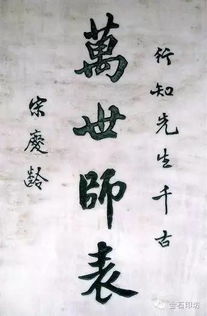 行知先生千古
萬世師表
宋慶齡
金石印坊